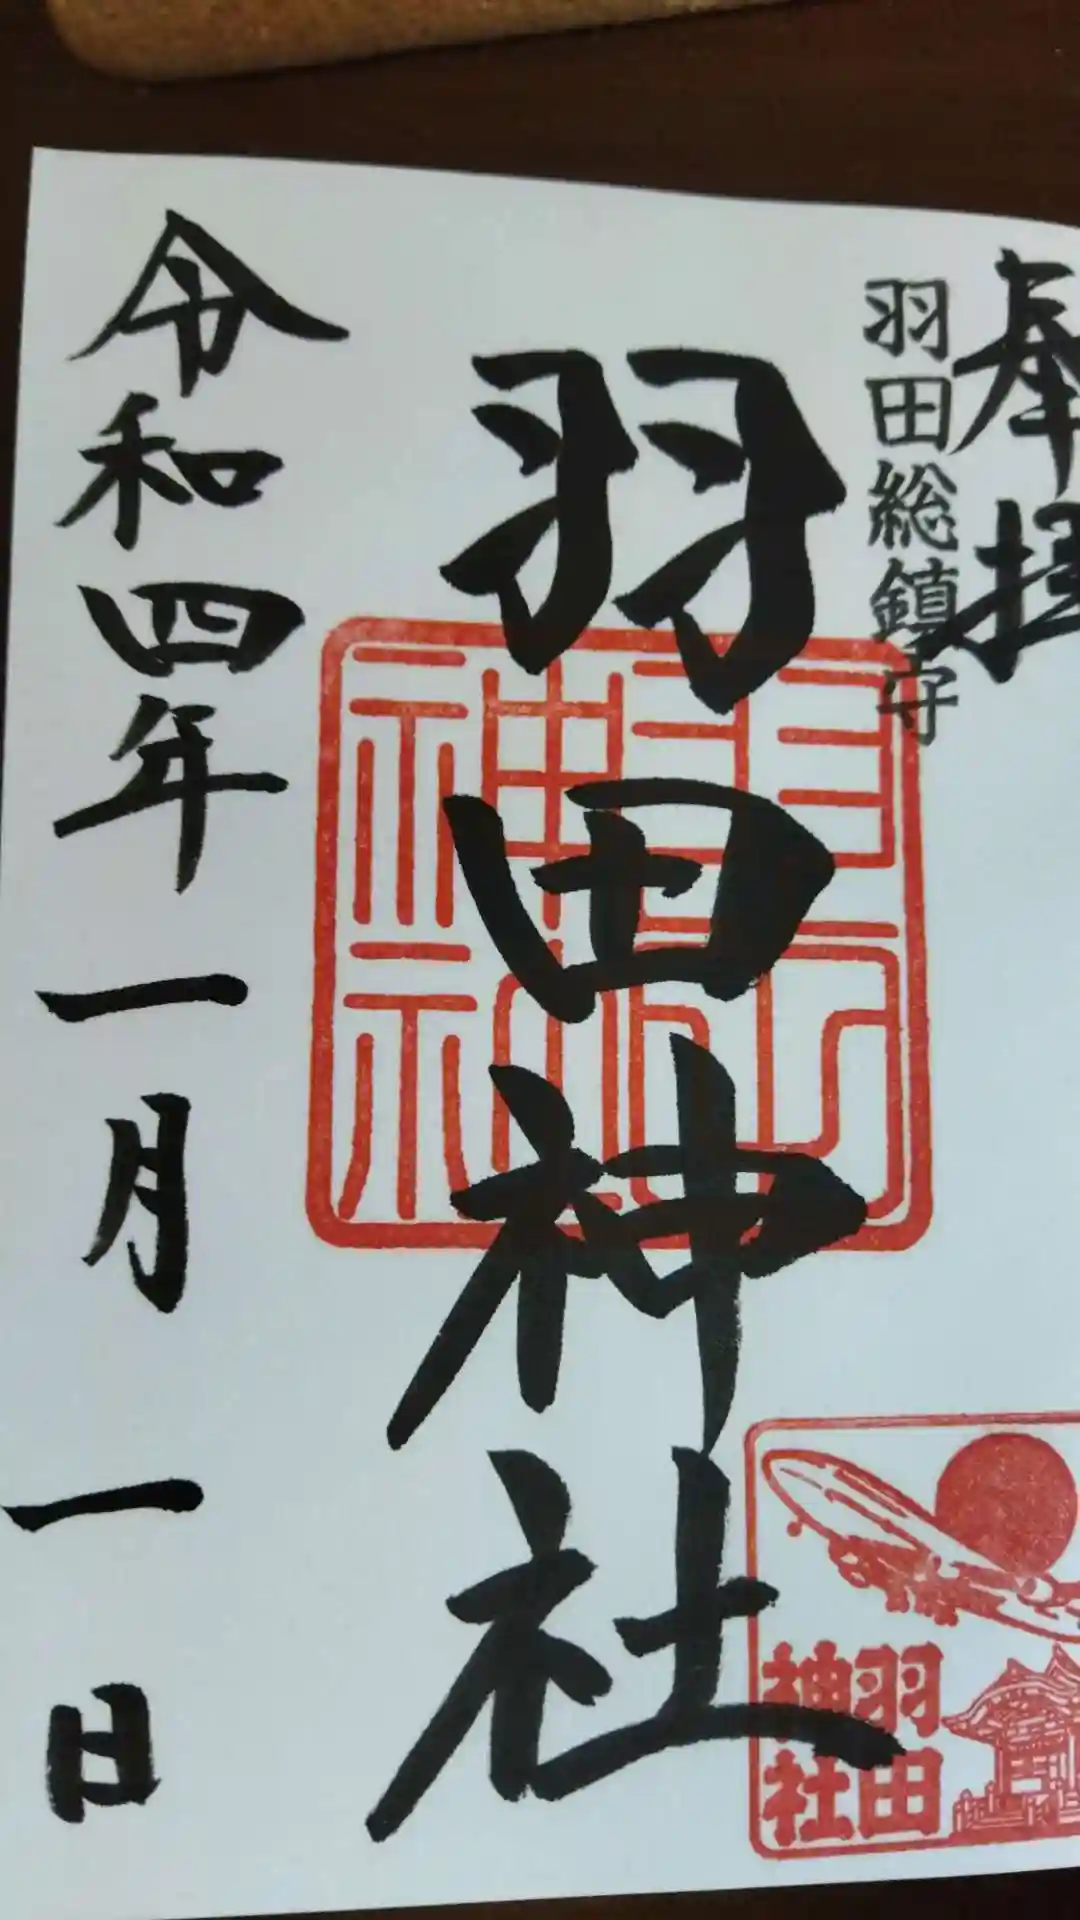 奉拝
羽田総鎮守
羽田神社
羽田
神社
羽田
神社
令和四年一月一日